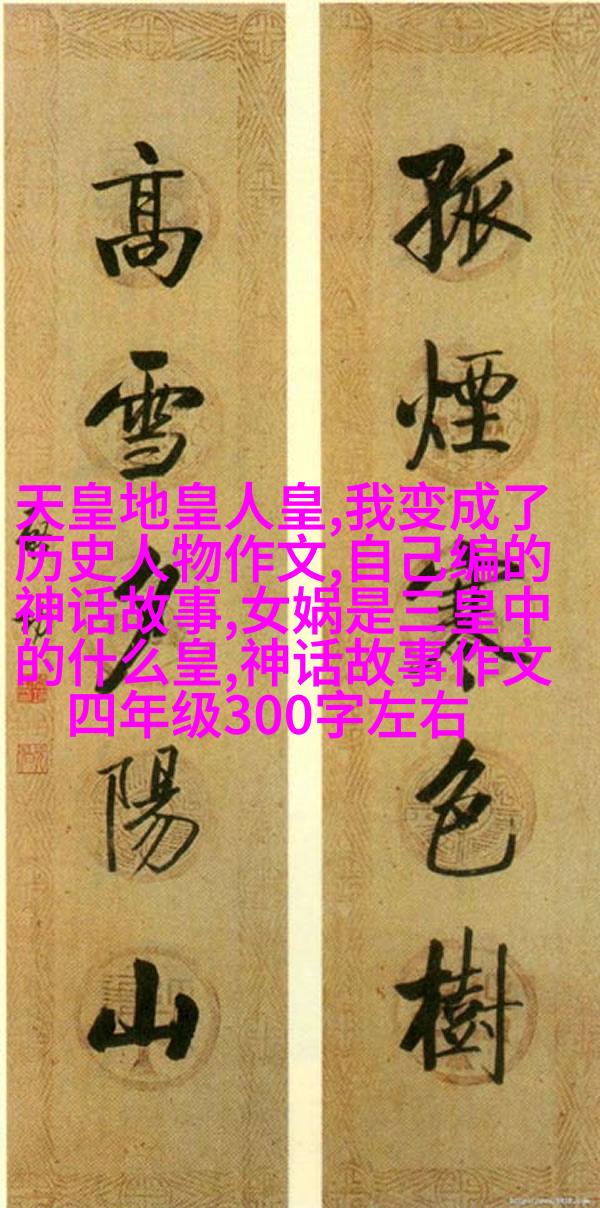 孤煙寒色樹
高雪夕陽山
天皇地皇人皇,我变成了
历史人物作文,自己编的
神话故事,女娲是三皇中
的什么皇,神话故事作文
四年级300字左右